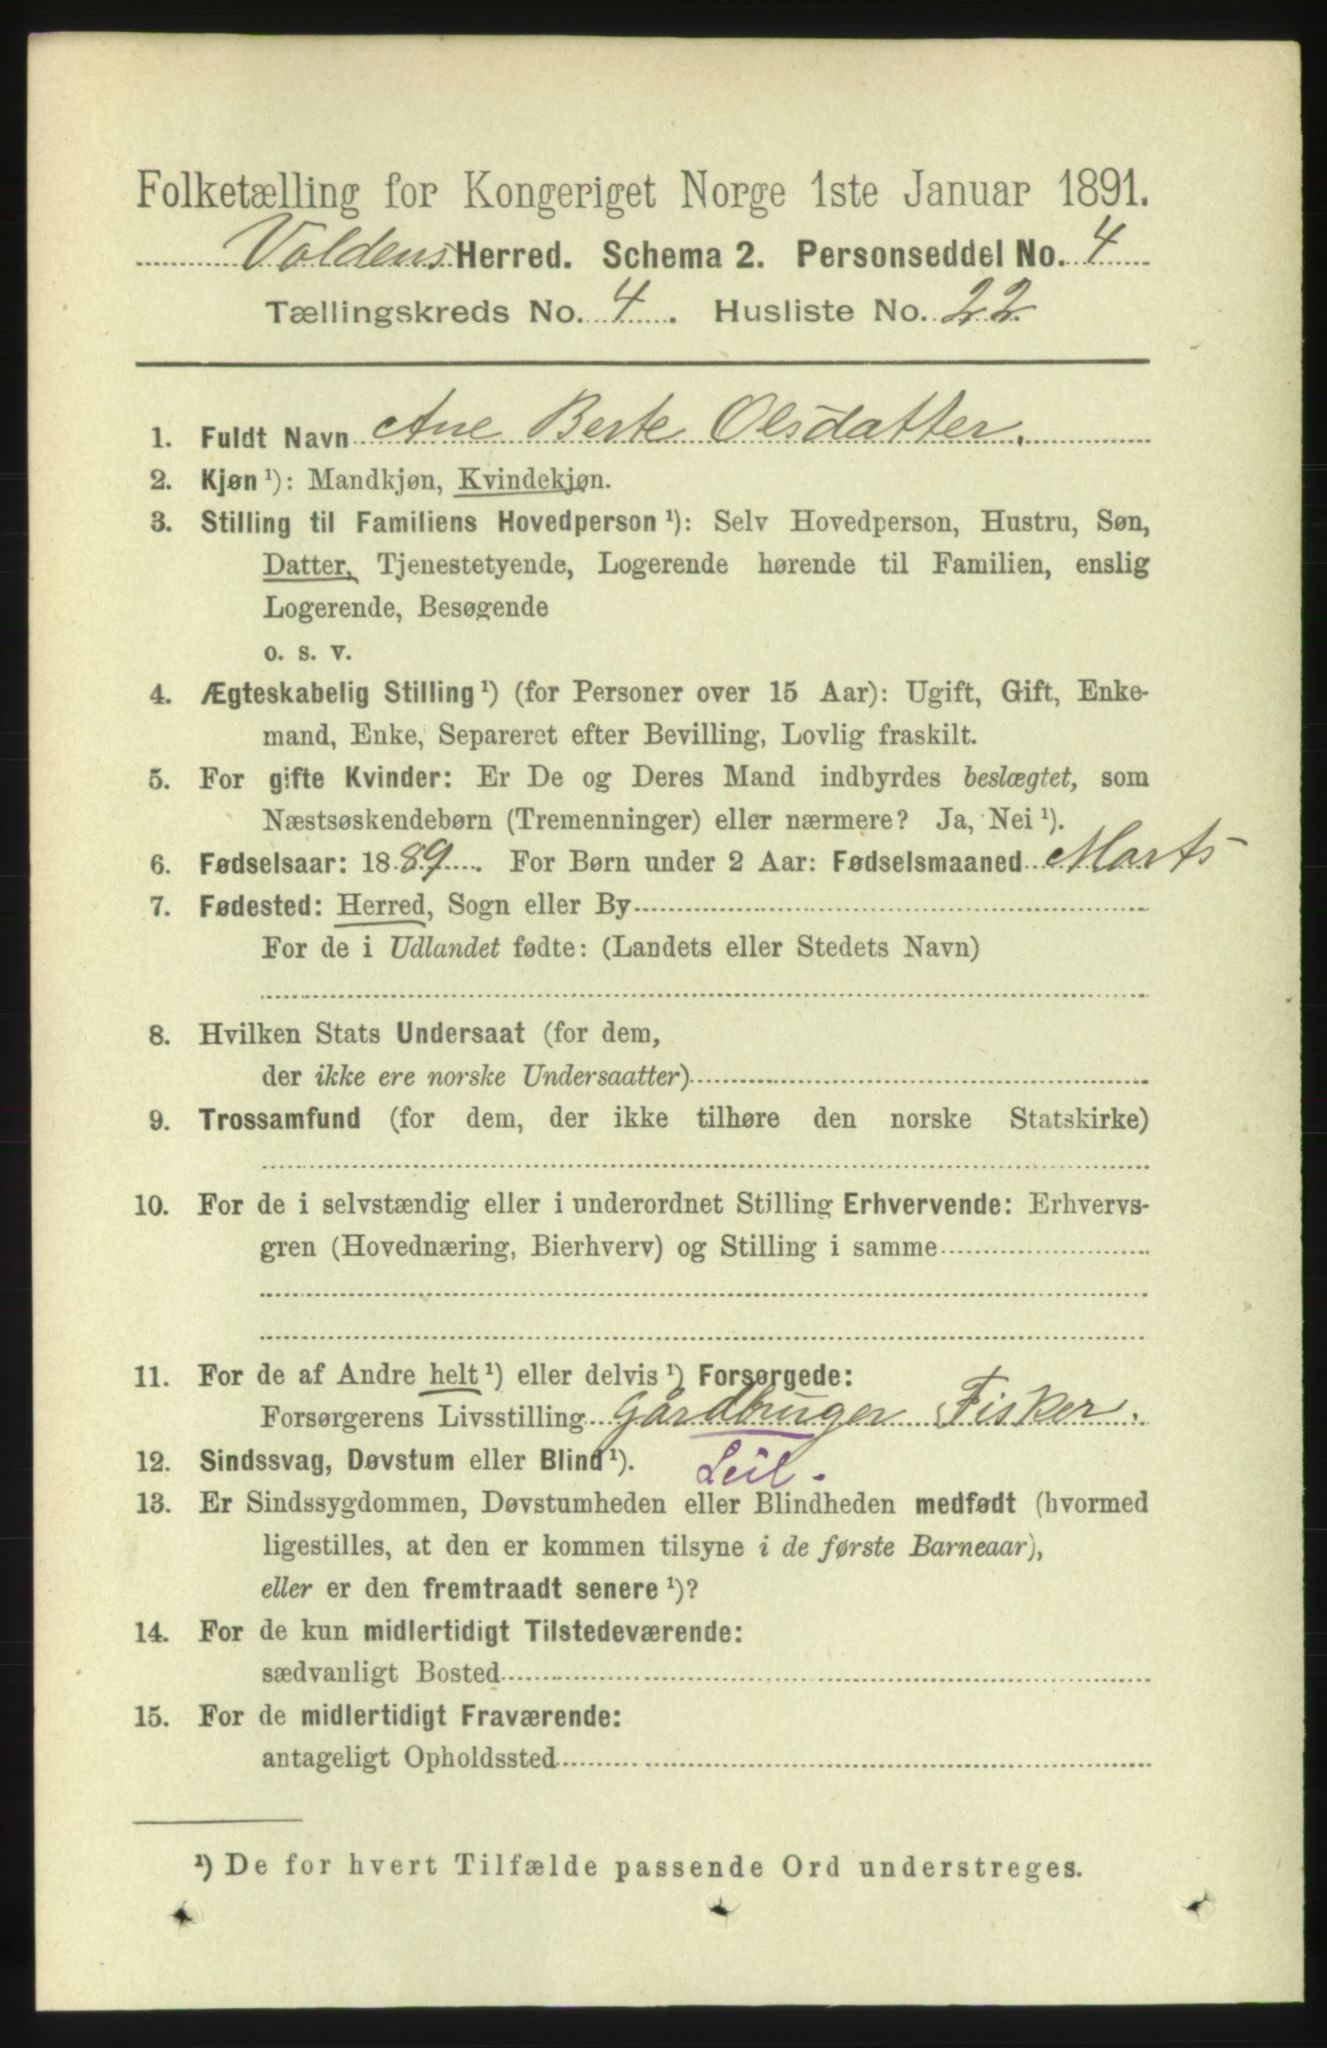 Folketælling for Kongeriget Norge 1ste Januar 1891.
Voldens Herred. Schema 2. Personseddel No. 4
Tællingskreds No. 4. Husliste No. 22
1. Fuldt Navn Ane Berte Olsdatter.
2. Kjøn ¹): Mandkjøn, Kvindekjøn.
3. Stilling til Familiens Hovedperson ¹): Selv Hovedperson, Hustru, Søn,
Datter, Tjenestetyende, Logerende hørende til Familien, enslig
Logerende, Besøgende
o. s. v.
4. Ægteskabelig Stilling ¹) (for Personer over 15 Aar): Ugift, Gift, Enke-
mand, Enke, Separeret efter Bevilling, Lovlig fraskilt.
5. For gifte Kvinder: Er De og Deres Mand indbyrdes beslægtet, som
Næstsøskendebørn (Tremenninger) eller nærmere? Ja, Nei ¹).
6. Fødselsaar: 1889. For Børn under 2 Aar: Fødselsmaaned Marts
7. Fødested: Herred, Sogn eller By
For de i Udlandet fødte: (Landets eller Stedets Navn)
8. Hvilken Stats Undersaat (for dem,
der ikke ere norske Undersaatter)
9. Trossamfund (for dem, der ikke tilhøre den norske Statskirke)
10. For de i selvstændig eller i underordnet Stilling Erhvervende: Erhvervs-
gren (Hovednæring, Bierhverv) og Stilling i samme
11. For de af Andre helt ¹) eller delvis ¹) Forsørgede:
Forsørgerens Livsstilling Gårdbruger Fisker.
12. Sindssvag, Døvstum eller Blind ¹). Leil.
13. Er Sindssygdommen, Døvstumheden eller Blindheden medfødt (hvormed
ligestilles, at den er kommen tilsyne i de første Barneaar),
eller er den fremtraadt senere ¹)?
14. For de kun midlertidigt Tilstedeværende:
sædvanligt Bosted
15. For de midlertidigt Fraværende:
antageligt Opholdssted
¹) De for hvert Tilfælde passende Ord understreges.